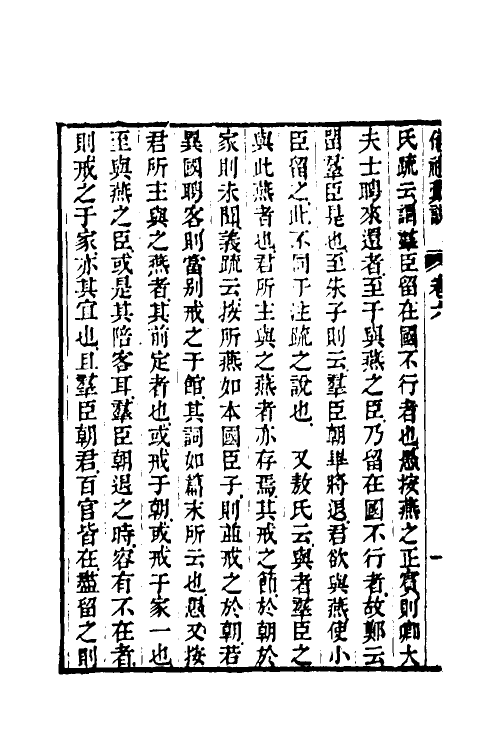 儀禮疑說
卷六
一
氏疏云謂羣臣留在國不行者也愚按燕之正賓則卿大
夫士聘來還者至于與燕之臣乃留在國不行者故鄭云
留羣臣是也至朱子則云羣臣朝畢將退君欲與燕使小
臣留之此不同于注疏之說也　又敖氏云與者羣臣之
與此燕者也君所主與之燕者亦存焉其戒之節於朝於
家則未聞義疏云按所燕如本國臣子則並戒之於朝若
異國聘客則當别戒之于館其詞如篇末所云也愚又按
君所主與之燕者其前定者也或戒于朝或戒于家一也
至與燕之臣或是其陪客耳羣臣朝退之時容有不在者
則戒之于家亦其宜也且羣臣朝君百官皆在盡留之則